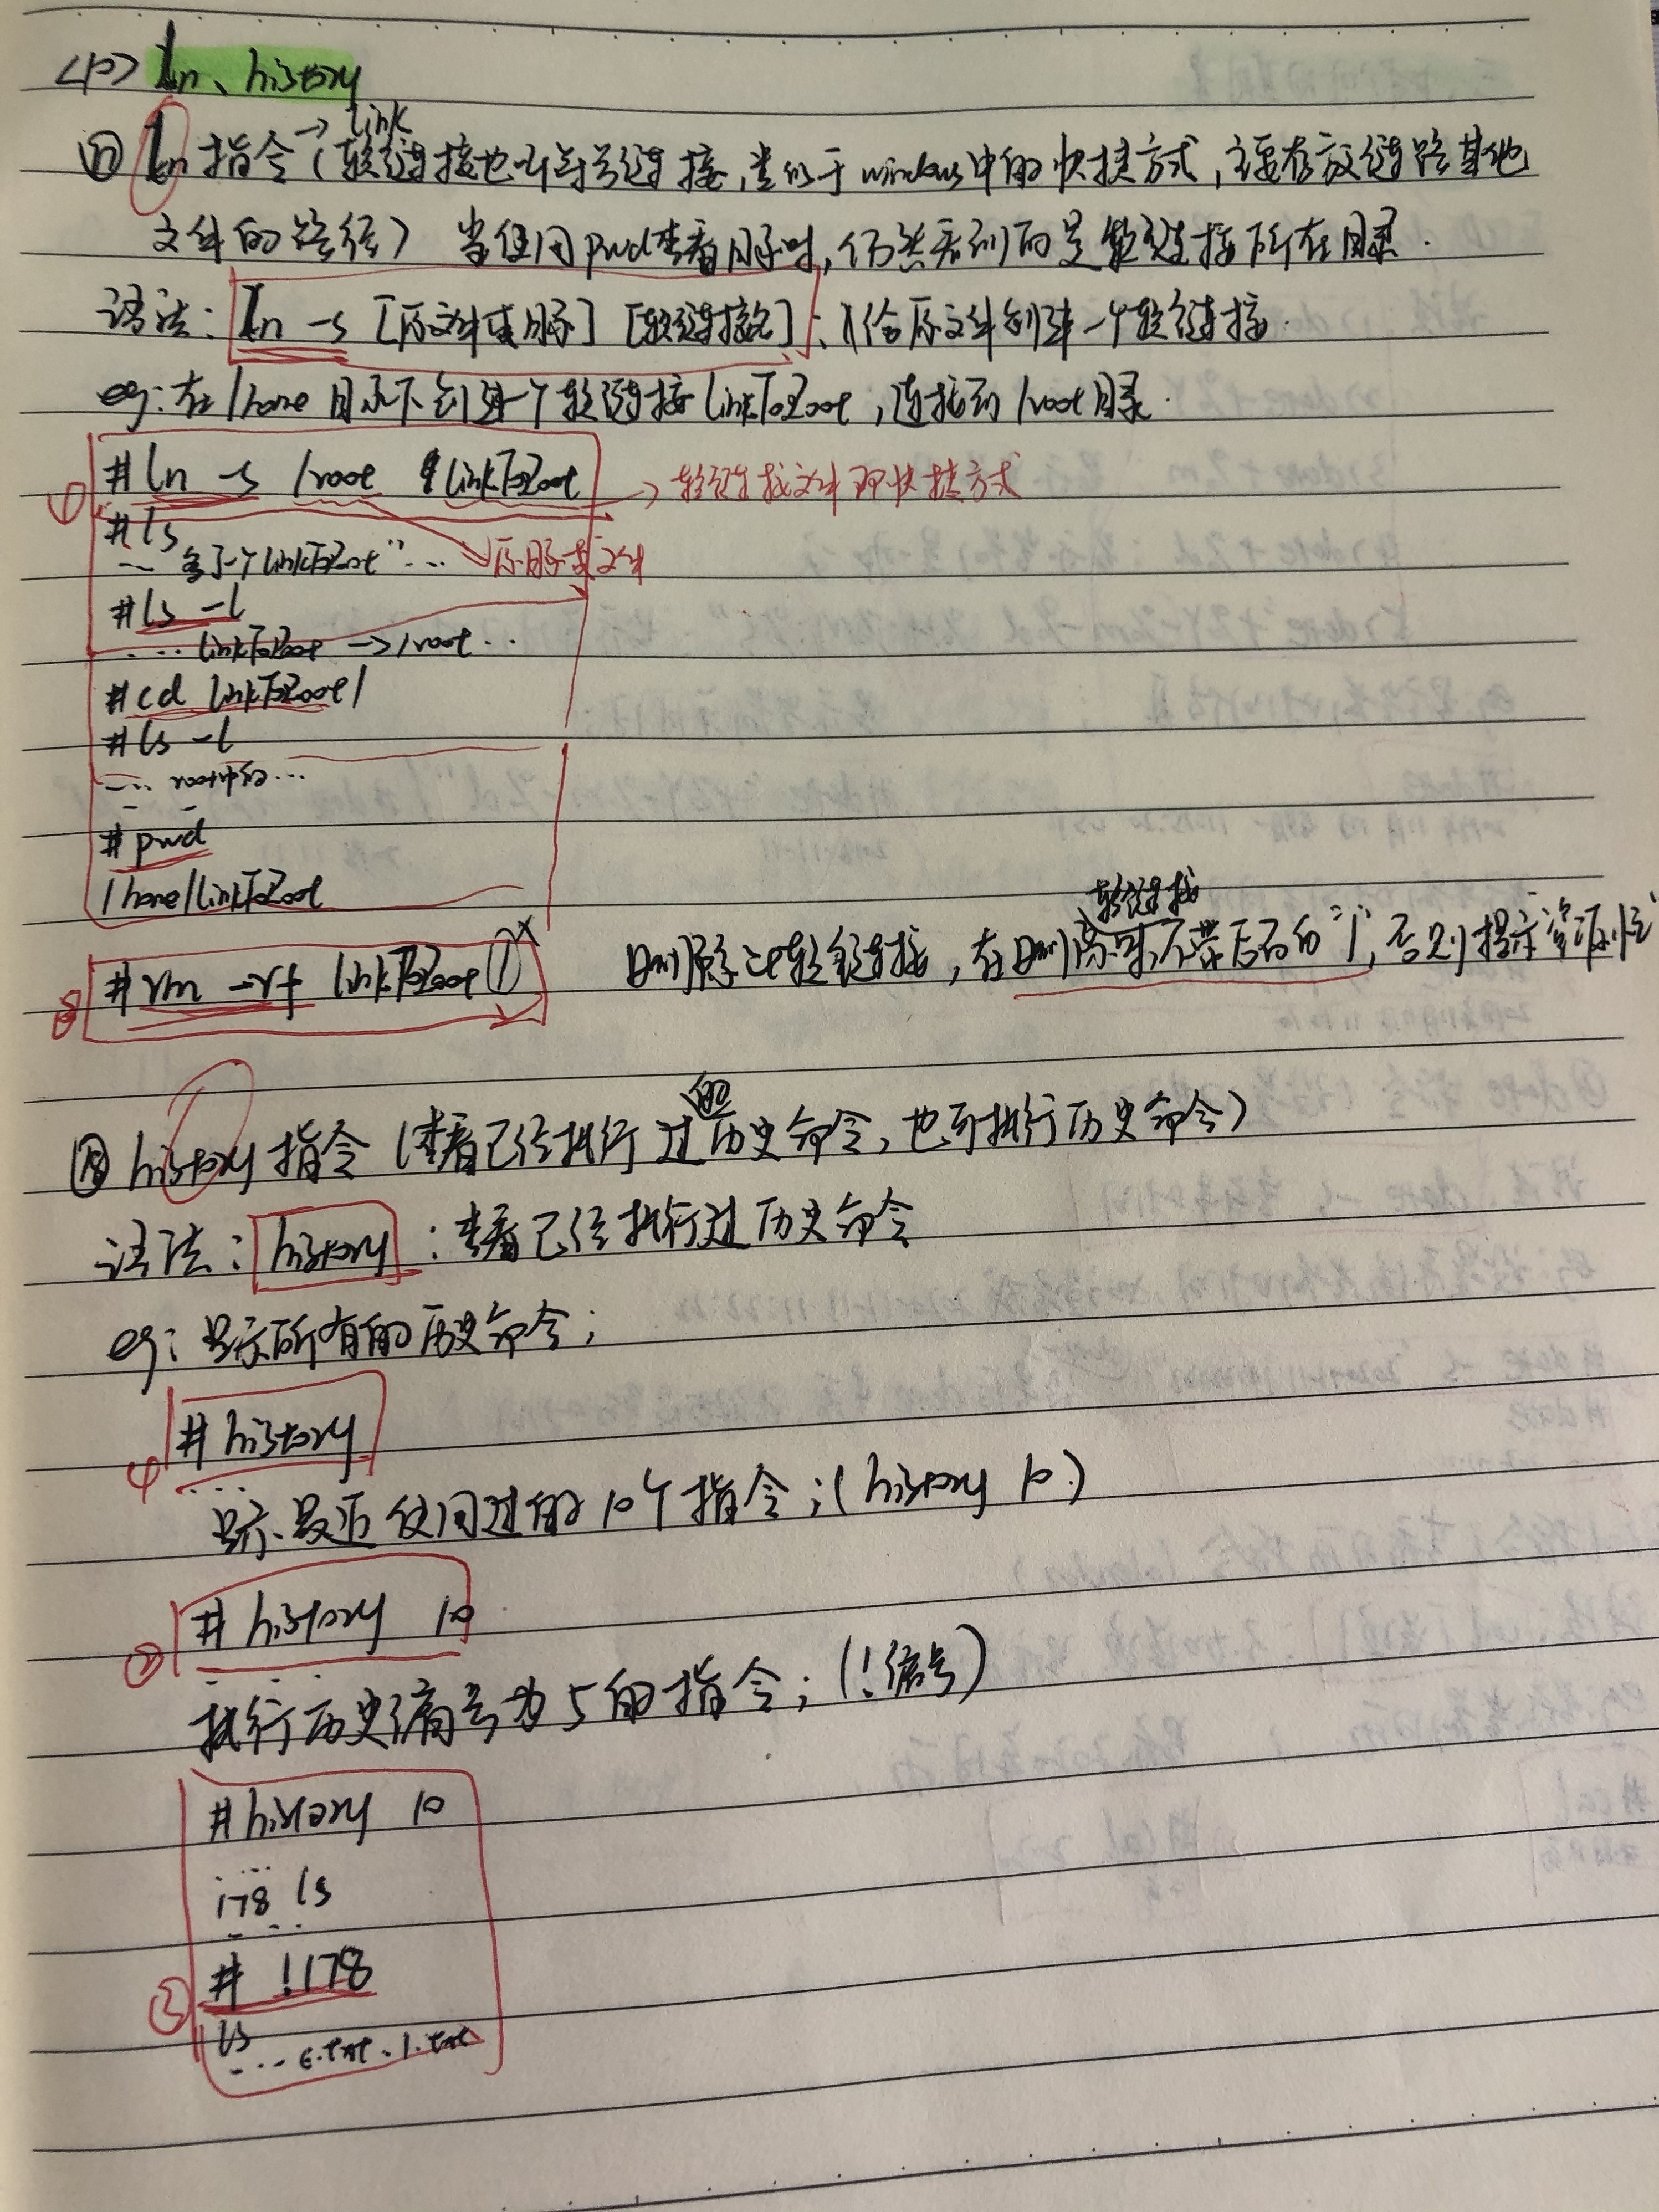 <10> ln、history
⑰ ln 指令 → link
(软链接也叫符号链接,类似于windows中的快捷方式,主要存放链路其他
文件的路径) 当使用pwd查看目录时,仍然看到的是软链接所在目录.
语法: ln -s [原文件或目录] [软链接名]; 给原文件创建一个软链接.
eg:在/home 目录下创建一个软链接linkToRoot,连接到 /root目录.
① #ln -s /root linkToRoot → 软链接文件即快捷方式
#ls
… 多了一个linkToRoot" … 原目录或文件
#ls -l
… linkToRoot → /root …
#cd linkToRoot/
#ls -l
… root中的 …
#pwd
/home/linkToRoot
② #rm -rf linkToRoot / × 删除此软链接,在删除软链接时不带后面的"/",否则提示资源忙
⑱ history 指令 (查看已经执行过的历史命令,也可执行历史命令)
语法: history :查看已经执行过历史命令
eg: 显示所有的历史命令;
① #history
…
显示最近使用过的10个指令;(history 10)
② #history 10
…
执行历史编号为5的指令;(!编号)
#history 10
…
178 ls
…
③ # !178
ls
… 1.txt